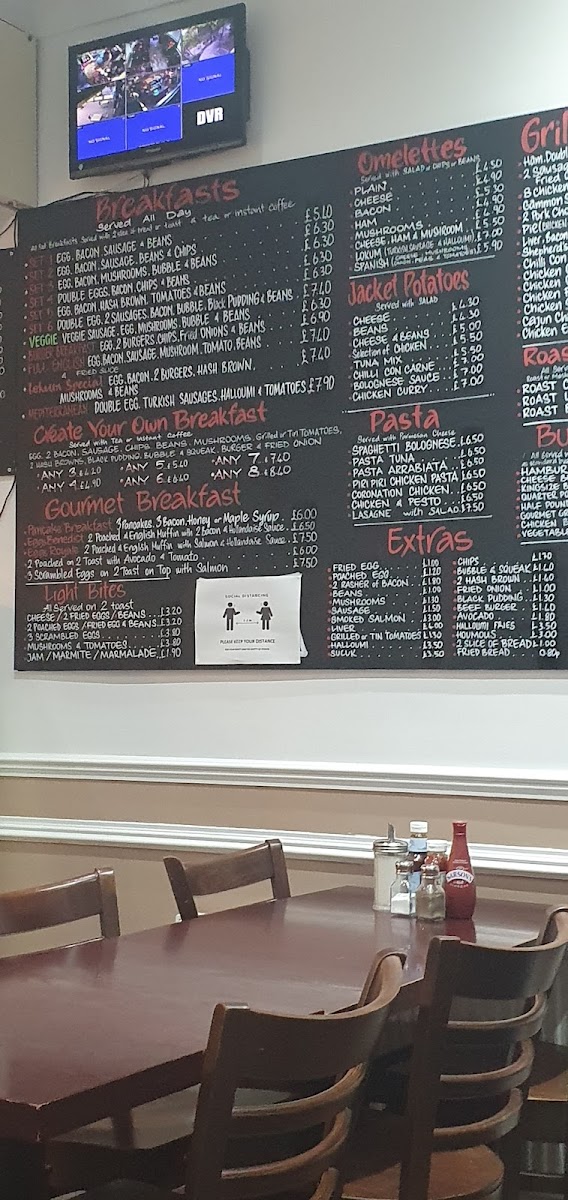 NO SIGNAL
NO SIGNAL
NO SIGNAL
DVR
Breakfasts
Served All Day
tea or instant coffee
SET 1 EGG, BACON, SAUSAGE & BEANS £5.40
SET 2 EGG, BACON, SAUSAGE, BEANS & CHIPS £6.30
SET 3 EGG, BACON, MUSHROOMS, BUBBLE & BEANS £6.30
SET 4 DOUBLE EGGS, BACON, CHIPS & BEANS £6.30
SET 5 EGG, BACON, HASH BROWN, TOMATOES & BEANS
SET 6 DOUBLE EGG, 2 SAUSAGES, BACON, BUBBLE, Black PUDDING & BEANS
VEGGIE VEGGIE SAUSAGE, EGG, MUSHROOMS, BUBBLE & BEANS
BURGER BREAKFAST EGG, 2 BURGERS, CHIPS, Fried ONIONS & BEANS
FULL ENGLISH EGG, BACON, SAUSAGE, MUSHROOM, TOMATO, BEANS
& FRIED SLICE
Special EGG, BACON, 2 BURGERS, HASH BROWN,
MUSHROOMS & BEANS
MEDITERRANEAN DOUBLE EGG, TURKISH SAUSAGES, HALLOUMI & TOMATOES £7.90
Create Your Own Breakfast
Served with Tea or Instant Coffee
EGG, 2 BACON, SAUSAGE, CHIPS, BEANS, MUSHROOMS, Grilled or TIN TOMATOES,
2 HASH BROWNS, BLACK PUDDING, BUBBLE & SQUEAK, BURGER & FRIED ONION
ANY 3 £4.20 ANY 5 £5.40 ANY 7 £7.40
ANY 4 £4.90 ANY 6 £6.40 ANY 8 £8.40
Gourmet Breakfast
Pancake Breakfast 3 Pancakes, 3 Bacon, Honey or Maple Syrup £6.00
Egg Benedict 2 Poached & English Muffin with 2 Bacon & Hollandaise Sauce £6.50
Egg Royale 2 Poached & English Muffin with Salmon & Hollandaise Sauce £7.50
2 Poached on 2 Toast with Avocado & Tomato £6.00
3 Scrambled Eggs on 2 Toast on Top with Salmon £7.50
Light Bites
All Served on 2 toast
CHEESE / 2 FRIED EGGS / BEANS £3.20
2 POACHED EGG / FRIED EGG & BEANS £3.20
3 SCRAMBLED EGGS £3.80
MUSHROOMS & TOMATOES £3.80
JAM / MARMITE / MARMALADE £1.90
SOCIAL DISTANCING
PLEASE KEEP YOUR DISTANCE
Omelettes
Served with SALAD or CHIPS or BEANS
PLAIN £4.50
CHEESE £4.90
BACON £5.30
HAM £4.90
MUSHROOMS
CHEESE, HAM & MUSHROOM £5.90
LOKUM (TURKISH SAUSAGE & HALLOUMI) £7.00
SPANISH £5.90
Jacket Potatoes
Served with SALAD
CHEESE £4.30
BEANS £4.30
CHEESE & BEANS £5.00
Selection of CHICKEN £5.50
TUNA £5.50
CHILLI CON CARNE £7.00
BOLOGNESE SAUCE £7.00
CHICKEN CURRY £7.00
Pasta
Served with Parmesan Cheese
SPAGHETTI BOLOGNESE £6.50
PASTA TUNA £6.50
PASTA ARRABIATA £6.50
PIRI PIRI CHICKEN PASTA £6.50
CORONATION CHICKEN £6.50
CHICKEN & PESTO £6.50
LASAGNE with SALAD £7.50
Extras
FRIED EGG £1.00
POACHED EGG £1.20
2 RASHER of BACON £1.80
BEANS £1.00
MUSHROOMS
SAUSAGE
SMOKED SALMON £3.00
LIVER
GRILLED or TIN TOMATOES £1.30
HALLOUMI £3.50
SUCUK £3.50
CHIPS £1.70
BUBBLE & SQUEAK £1.40
2 HASH BROWN £1.40
FRIED ONION £1.00
BLACK PUDDING
BEEF BURGER
AVOCADO
HALLOUMI FRIES £3.50
HOUMOUS £3.00
2 SLICE OF BREAD £1.00
FRIED BREAD 0.80p
Gril
Ham, Doubl
2 Sausag
Fried
Gammon S
2 Pork Cho
PIE (CHICKEN
Liver, Bacon
Shepherd's
Chilli Con
Chicken
Chicken
Chicken
Chicken S
Cajun Ch
Chicken E
Roas
ROAST C
ROAST
ROAST B
Bu
HAMBURG
CHEESE B
KINGSIZE B
QUARTER PO
HALF POUN
GOURMET
CHICKEN B
VEGETABL
SARSON'S